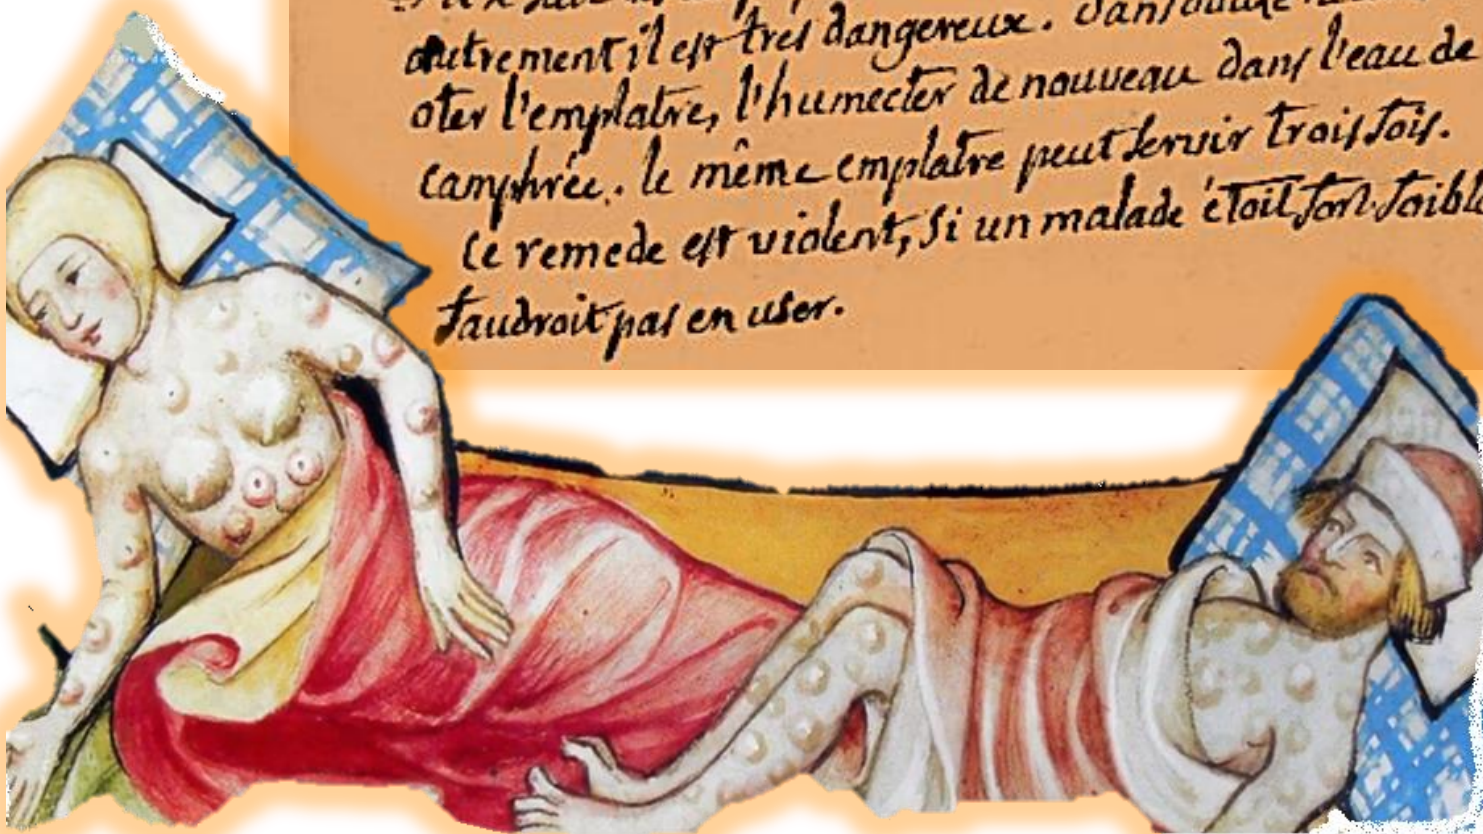 autrement il est tres dangereux. Dans
oter l'emplatre, l'humecter de nouveau dans l'eau de
camphrée. le même emplatre peut servir trois fois.
Ce remede est violent, si un malade étoit fort foible
faudroit pas en user.